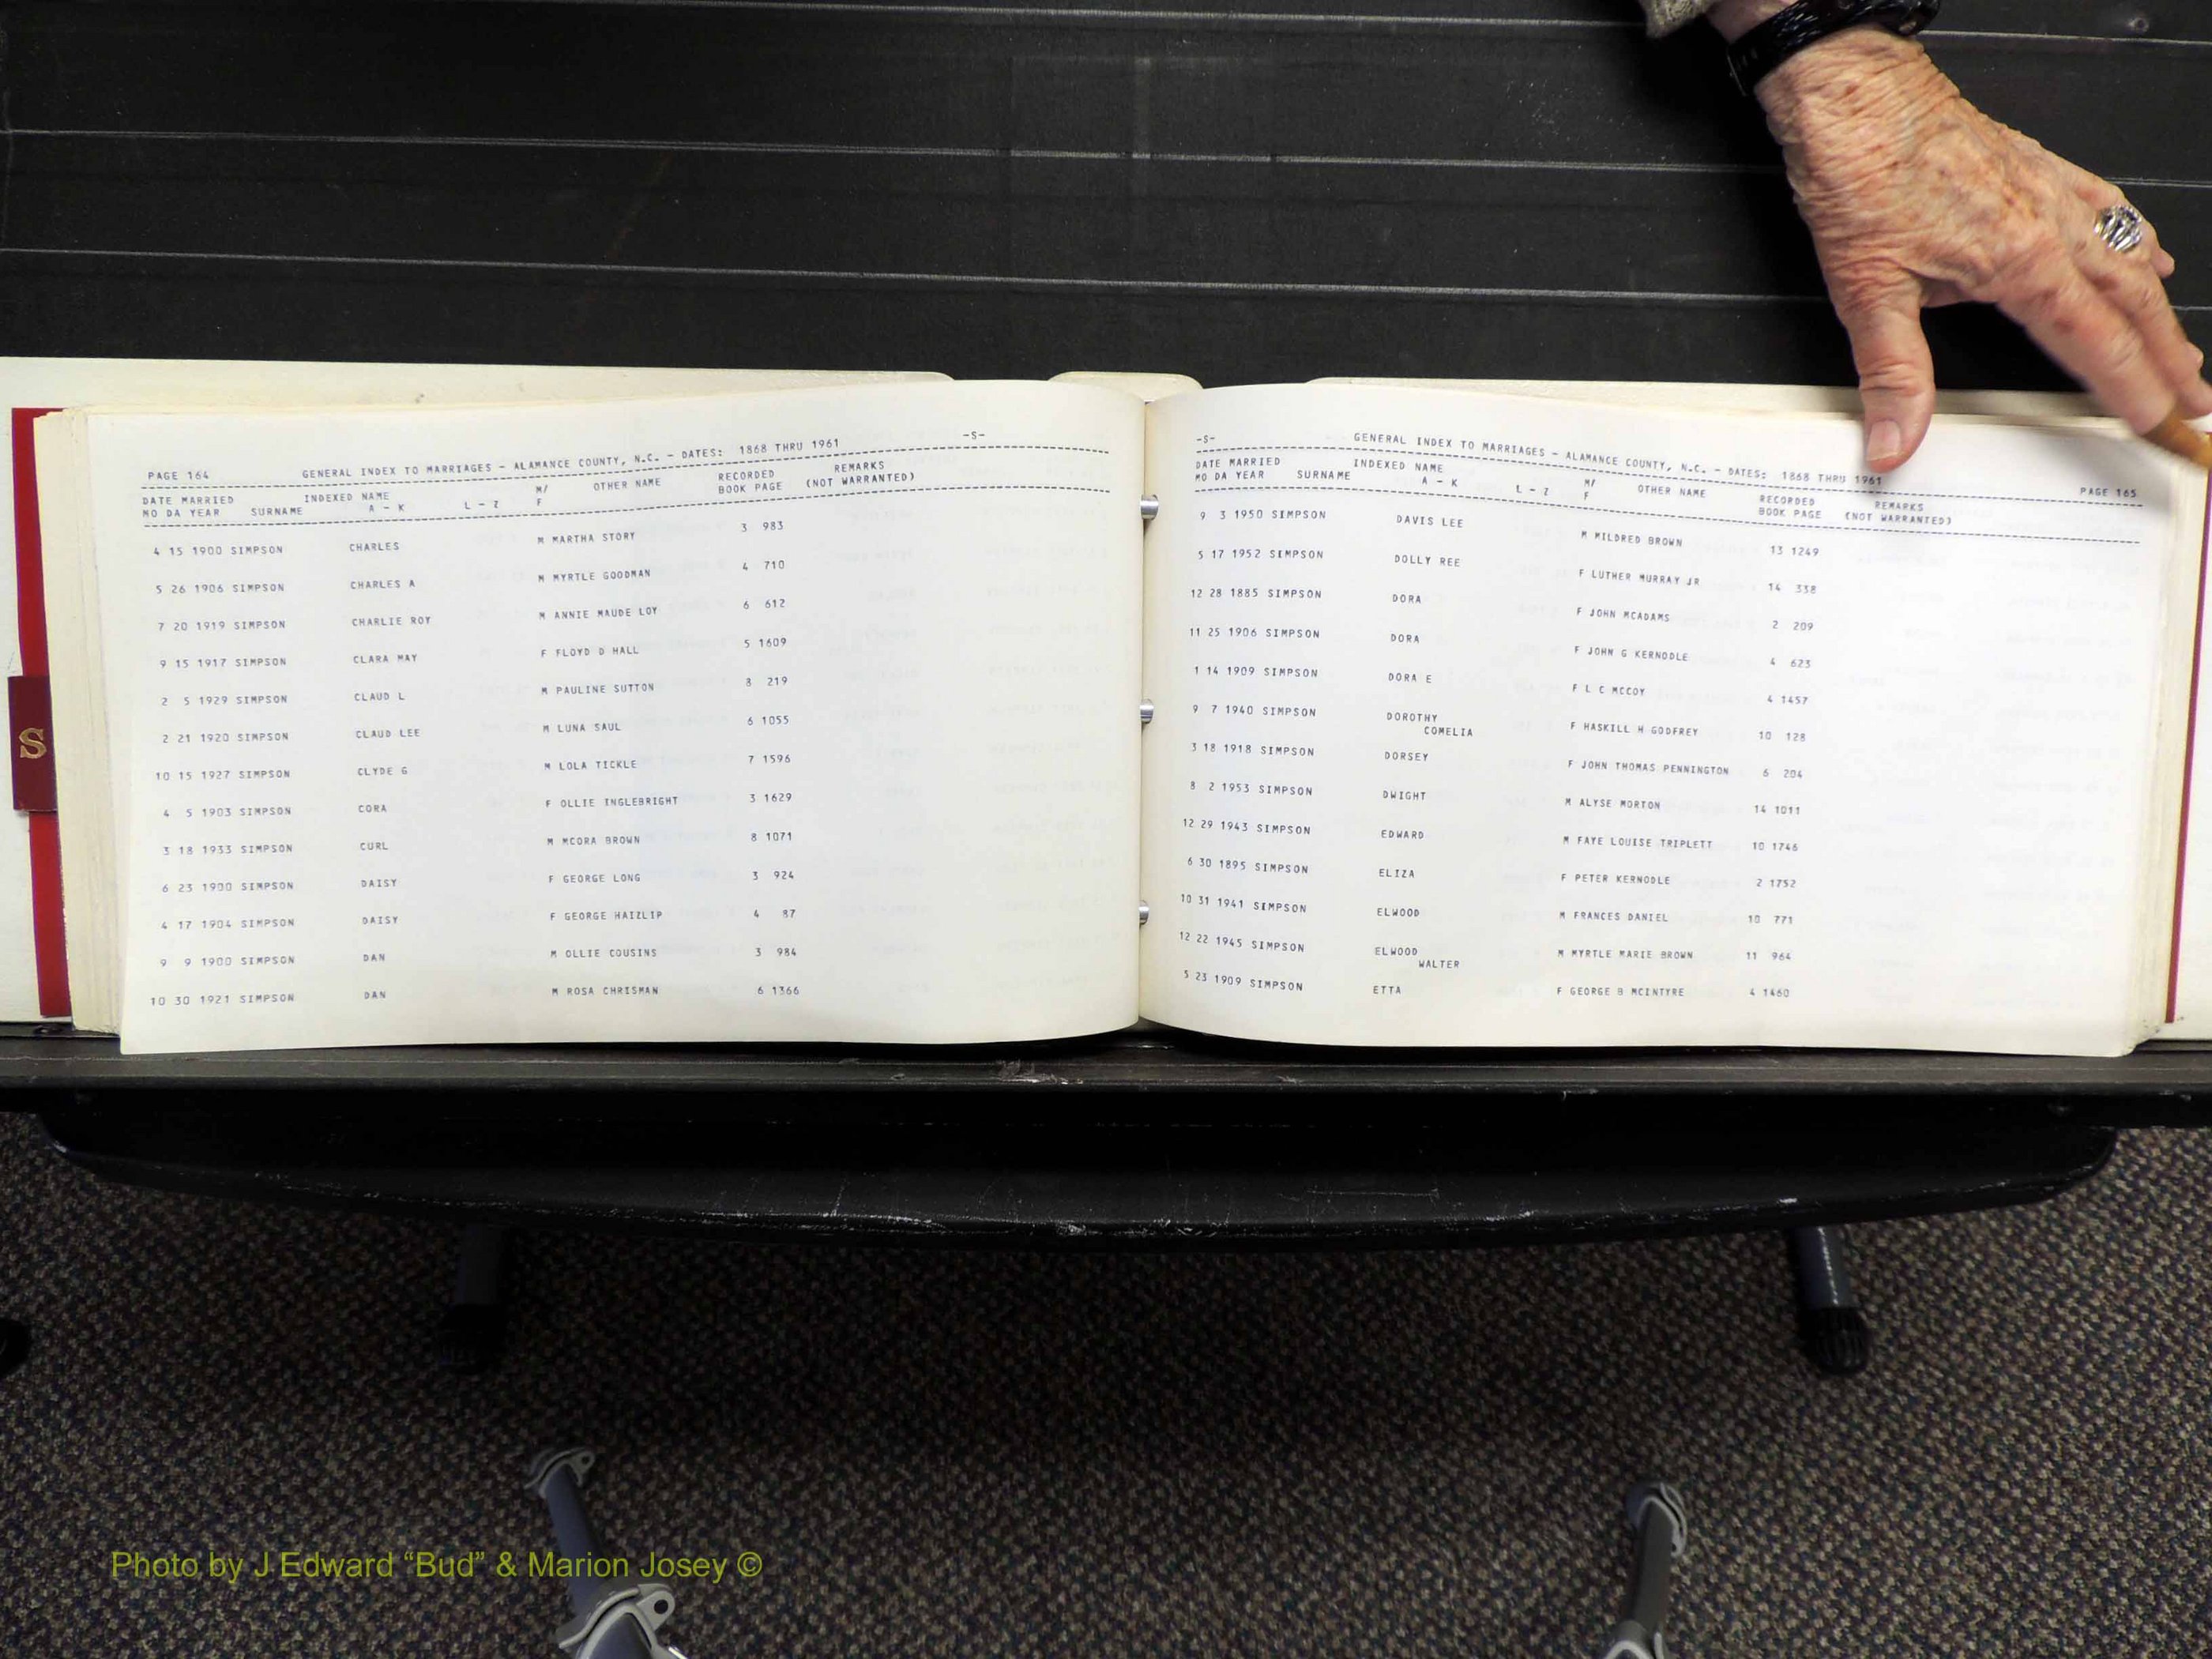 PAGE 164 GENERAL INDEX TO MARRIAGES - ALAMANCE COUNTY, N.C. - DATES: 1868 THRU 1961 -S-
DATE MARRIED INDEXED NAME M/ OTHER NAME RECORDED REMARKS
MO DA YEAR SURNAME A - K L - Z F BOOK PAGE (NOT WARRANTED)
4 15 1900 SIMPSON CHARLES M MARTHA STORY 3 983
5 26 1906 SIMPSON CHARLES A M MYRTLE GOODMAN 4 710
7 20 1919 SIMPSON CHARLIE ROY M ANNIE MAUDE LOY 6 612
9 15 1917 SIMPSON CLARA MAY F FLOYD D HALL 5 1609
2 5 1929 SIMPSON CLAUD L M PAULINE SUTTON 8 219
2 21 1920 SIMPSON CLAUD LEE M LUNA SAUL 6 1055
10 15 1927 SIMPSON CLYDE G M LOLA TICKLE 7 1596
4 5 1903 SIMPSON CORA F OLLIE INGLEBRIGHT 3 1629
3 18 1933 SIMPSON CURL M MCORA BROWN 8 1071
6 23 1900 SIMPSON DAISY F GEORGE LONG 3 924
4 17 1904 SIMPSON DAISY F GEORGE HAIZLIP 4 87
9 9 1900 SIMPSON DAN M OLLIE COUSINS 3 984
10 30 1921 SIMPSON DAN M ROSA CHRISMAN 6 1366
S
-S- GENERAL INDEX TO MARRIAGES - ALAMANCE COUNTY, N.C. - DATES: 1868 THRU 1961 PAGE 165
DATE MARRIED INDEXED NAME M/ OTHER NAME RECORDED REMARKS
MO DA YEAR SURNAME A - K L - Z F BOOK PAGE (NOT WARRANTED)
9 3 1950 SIMPSON DAVIS LEE M MILDRED BROWN 13 1249
5 17 1952 SIMPSON DOLLY REE F LUTHER MURRAY JR 14 338
12 28 1885 SIMPSON DORA F JOHN MCADAMS 2 209
11 25 1906 SIMPSON DORA F JOHN G KERNODLE 4 623
1 14 1909 SIMPSON DORA E F L C MCCOY 4 1457
9 7 1940 SIMPSON DOROTHY F HASKILL H GODFREY 10 128
COMELIA
3 18 1918 SIMPSON DORSEY F JOHN THOMAS PENNINGTON 6 204
8 2 1953 SIMPSON DWIGHT M ALYSE MORTON 14 1011
12 29 1943 SIMPSON EDWARD M FAYE LOUISE TRIPLETT 10 1746
6 30 1895 SIMPSON ELIZA F PETER KERNODLE 2 1752
10 31 1941 SIMPSON ELWOOD M FRANCES DANIEL 10 771
12 22 1945 SIMPSON ELWOOD M MYRTLE MARIE BROWN 11 964
WALTER
5 23 1909 SIMPSON ETTA F GEORGE B MCINTYRE 4 1460
Photo by J Edward “Bud” & Marion Josey ©